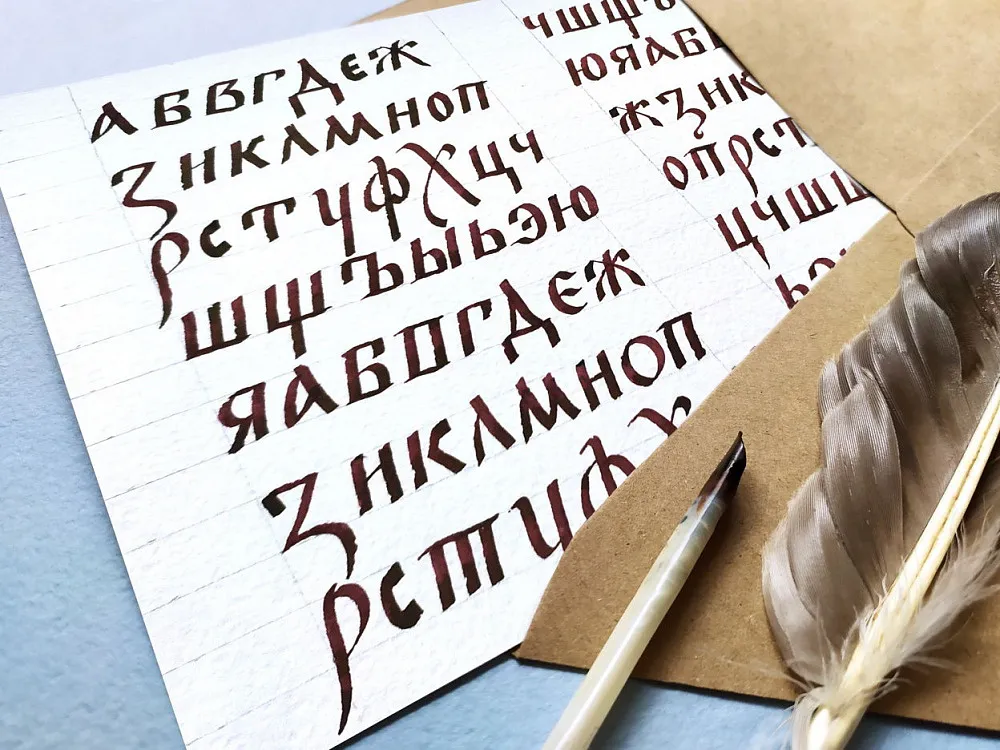 АБВГДЕЖ
ЗИКЛМНОП
РСТУФХЦЧ
ШЩЪЫЬЭЮ
ЯАБВГДЕЖ
ЗИКЛМНОП
РСТУФХ
ЧШЩЪ
ЮЯАБВ
ЖЗИК
ОПРСТ
ЦЧШЩ
ЬЭ